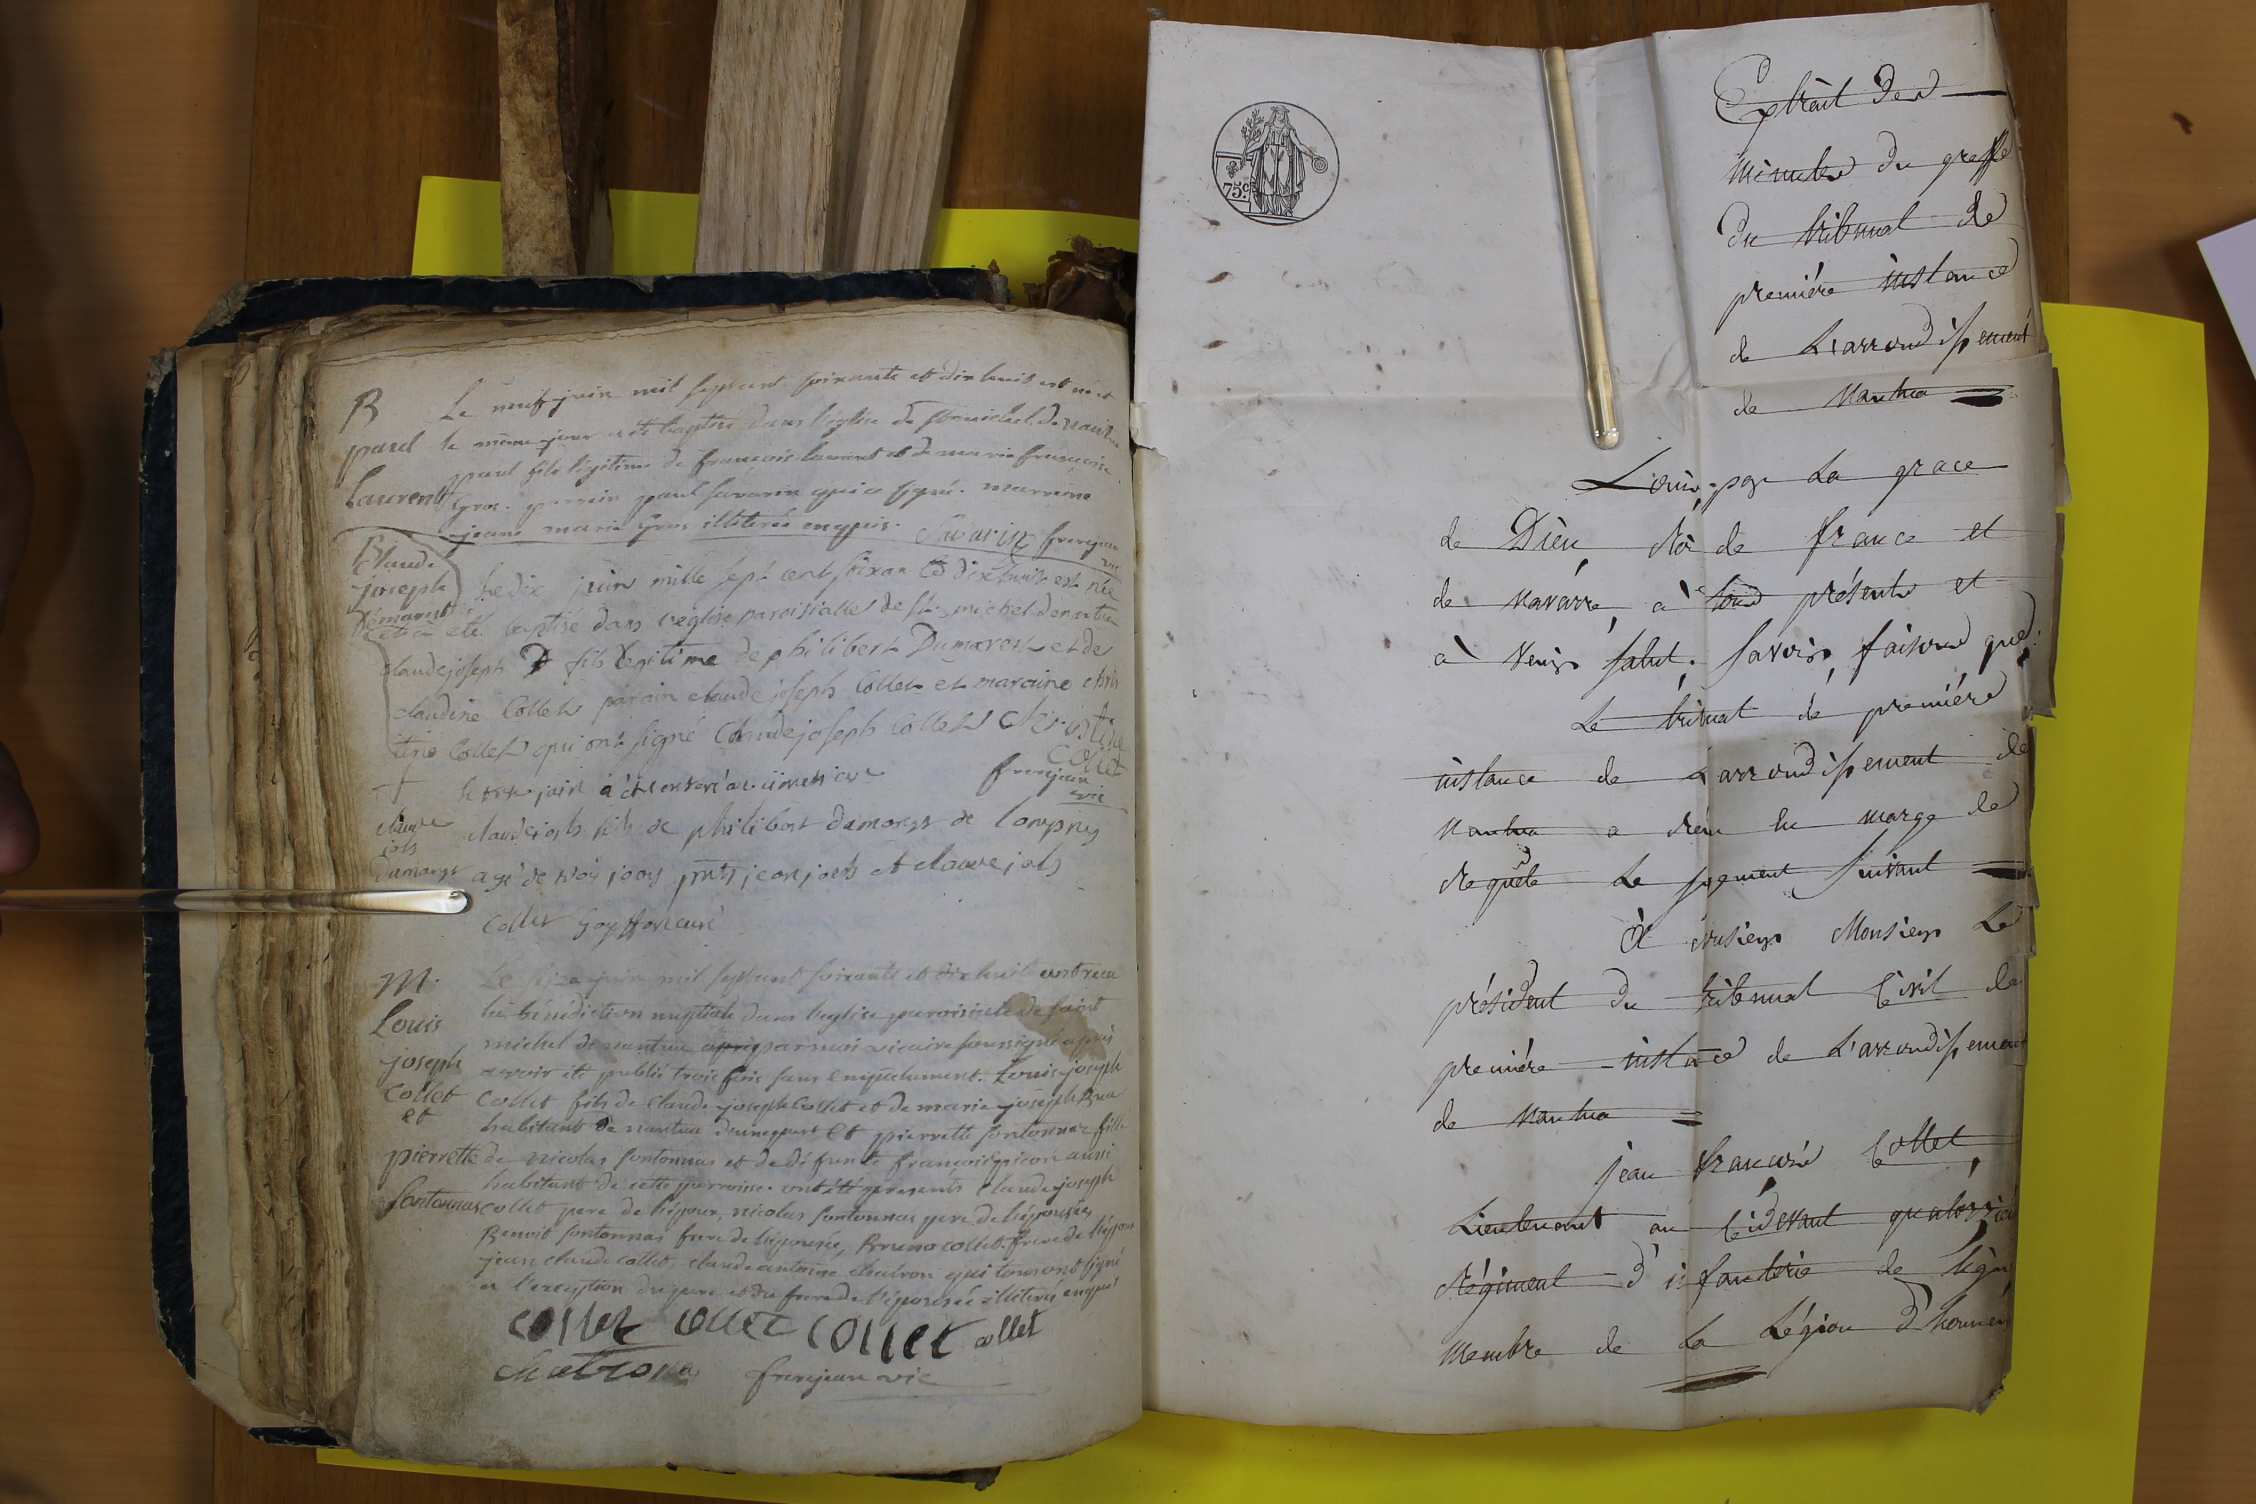 B
paul
Laurent
Le neuf juin mil sept cent soixante et dix huit est né et
le même jour a été baptisé dans l'église de st michel de nantua
paul fils légitime de françois laurent et de marie françoise
Gros. parrain paul savarin qui a signé. marraine
jeanne marie Gros illiterée enquis. Savarin frerejean
vic
B
Claude
joseph
Dumarest
Le dix juin mille sept cent soixante dix huit est née
et a été baptisé dans l'eglise paroissialle de st michel de nantua
claude joseph D fils legitime de philibert Dumarest et de
claudine Collet parain claude joseph Collet et maraine chris
tine Collet qui ont signé Claude joseph Collet christine
Collet
frerejean
vic
+
claude
jos
dumarest
le juin a été enterré au cimetiere
claude jos fils de philibert dumarest de Lompnes
agé de trois jours pnts jean jos et claude jos
collet curé
M.
Louis
joseph
Collet
et
pierrette
fontonnas
Le seize juin mil sept cent soixante et dix huit ont recu
la bénédiction nuptiale dans l'eglise paroissiale de saint
michel de nantua par moi vicaire soussigné après
avoir été publié trois fois sans empechement. Louis joseph
Collet fils de Claude joseph Collet et de marie joseph
habitants de nantua d'une part et pierrette fontonnas fille
de nicolas fontonnas et de défunte françoise aussi
habitant de cette parroisse. ont été presents Claude joseph
collet pere de l'époux, nicolas fontonnas pere de l'épousée,
Benoit fontonnas frere de l'épousée, Bruno collet frere de l'époux
jean claude collet, claude antoine chatron qui tous ont signé
a l'exception du pere et du frere de l'épousée illiterés enquis
collet collet collet collet
chatron frerejean vic
75c.
Extrait des
minutes du greffe
Du tribunal de
première instance
de L'arrondissement
de Nantua
Louis, par La grace
de Dieu, Roi de france et
de navarre, à tous présents et
à venir salut. Savoir faisons que:
Le tribunal de première
instance de L'arrondissement de
Nantua a rendu en marge de
Requête Le jugement Suivant
À Monsieur Le
président du tribunal Civil de
première instance de L'arrondissement
de Nantua
jean françois Collet,
Lieutenant au Cidevant quatorzième
Régiment d'infanterie de ligne
Membre de La Légion d'honneur